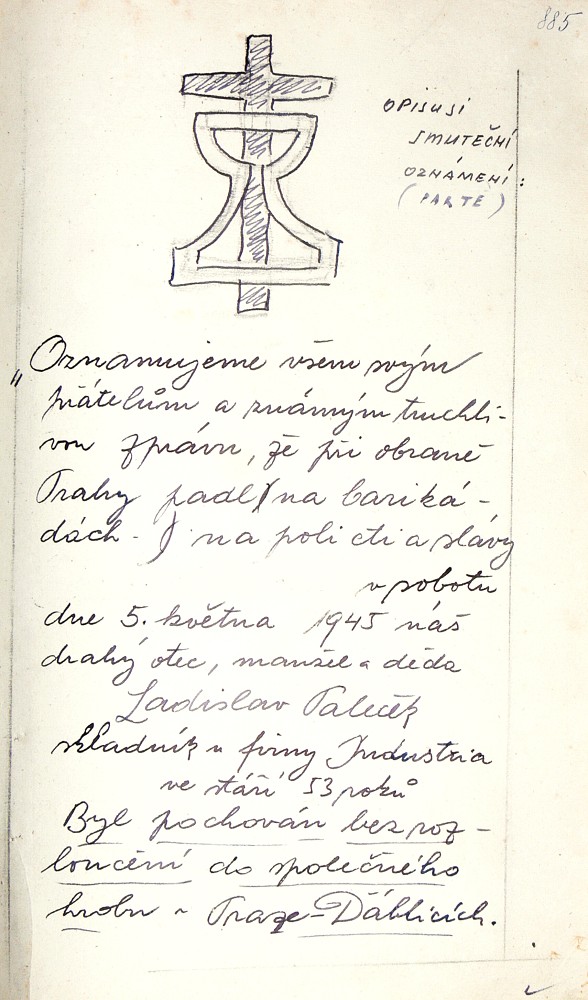 885
OPISUJI
SMUTEČNÍ
OZNÁMENÍ:
(PARTE)
"Oznamujeme všem svým
přátelům a známým truchli-
vou zprávu, že při obraně
Prahy padl na bariká-
dách - na poli cti a slávy
v sobotu
dne 5. května 1945 náš
drahý otec, manžel a děda
Ladislav Paleček
skladník u firmy Industria
ve stáří 53 roků
Byl pochován bez roz-
loučení do společného
hrobu v Praze-Ďáblicích.